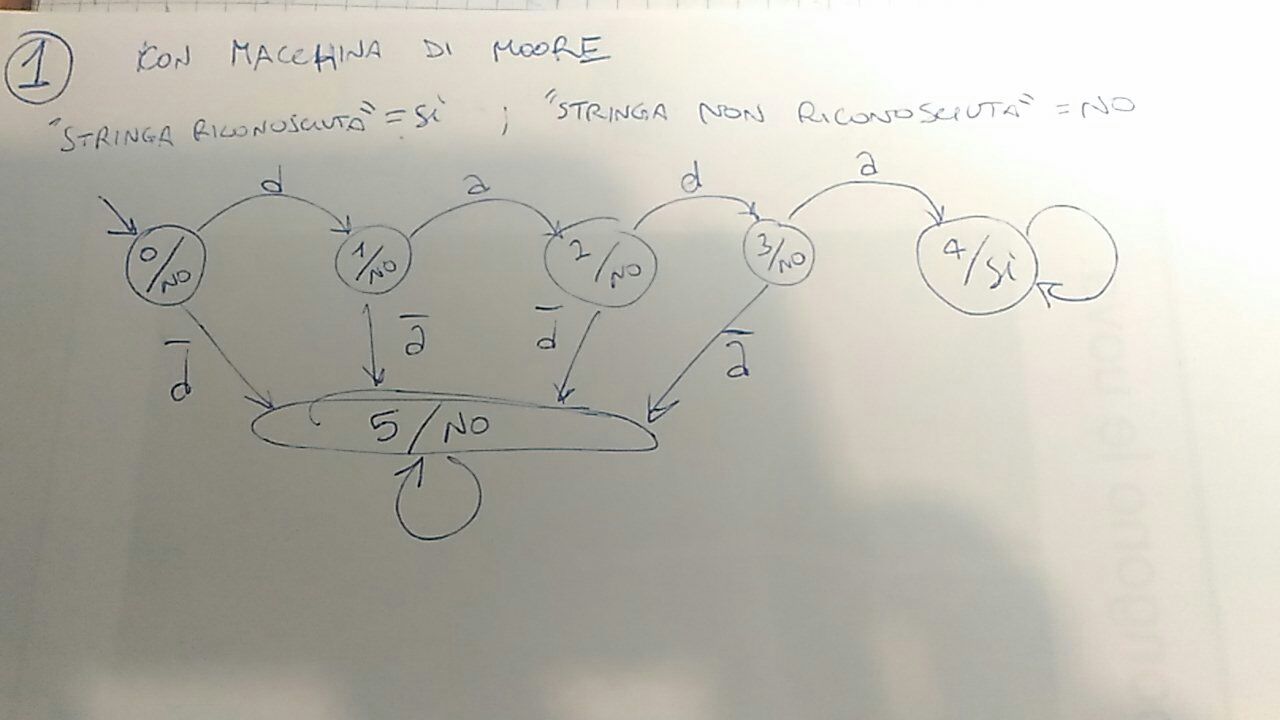 1 CON MACCHINA DI MOORE
"STRINGA RICONOSCIUTA" = SÌ ; "STRINGA NON RICONOSCIUTA" = NO
d a d a
0/NO 1/NO 2/NO 3/NO 4/SÌ
d̅ a̅ d̅ a̅
5/NO